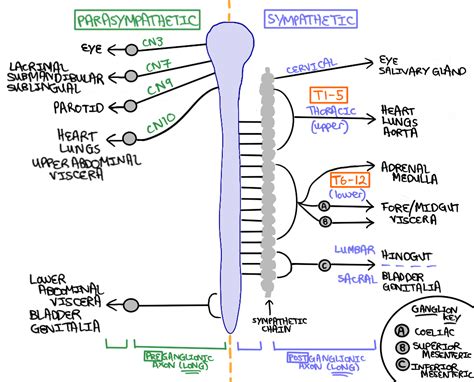 PARASYMPATHETIC
SYMPATHETIC
EYE
CN3
LACRIMAL
SUBMANDIBULAR
SUBLINGUAL
CN7
PAROTID
CN9
HEART
LUNGS
UPPER ABDOMINAL
VISCERA
CN10
LOWER
ABDOMINAL
VISCERA
BLADDER
GENITALIA
CERVICAL
EYE
SALIVARY GLAND
T1-5
THORACIC
(upper)
HEART
LUNGS
AORTA
T6-12
(lower)
ADRENAL
MEDULLA
A
B
FORE/MIDGUT
VISCERA
LUMBAR
HINDGUT
C
SACRAL
BLADDER
GENITALIA
SYMPATHETIC
CHAIN
PREGANGLIONIC
AXON (LONG)
POSTGANGLIONIC
AXON (LONG)
GANGLION
KEY
A COELIAC
B SUPERIOR
MESENTERIC
C INFERIOR
MESENTERIC